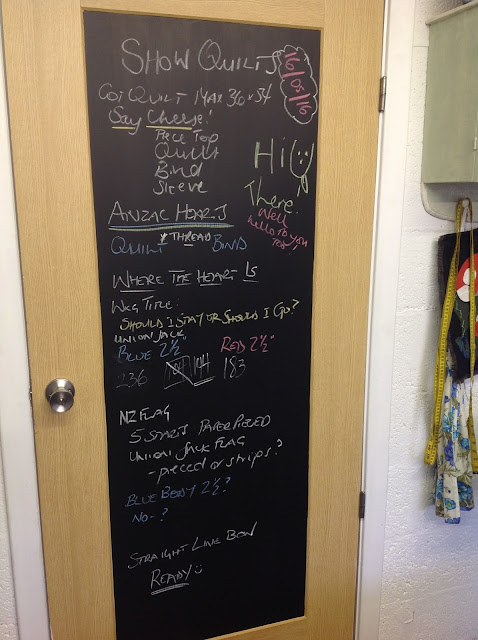 SHOW QUILTS
16/05/16
QUILT 14 MAX 36 x 54
Say Cheese!
Piece Top
Quilt
Bind
Sleeve
Hi
There!
Well
hello to you
too!
ANZAC HEARTS
QUILT & THREAD BIND
WHERE THE HEART IS
WKG TITLE:
SHOULD I STAY OR SHOULD I GO?
UNION JACK
BLUE 2½" RED 2½"
236 183
NZ FLAG
5 STARS PAPER PIECED
UNION JACK FLAG
- pieced or strips?
BLUE BODY 2½?
NO-?
STRAIGHT LINE BOW
READY